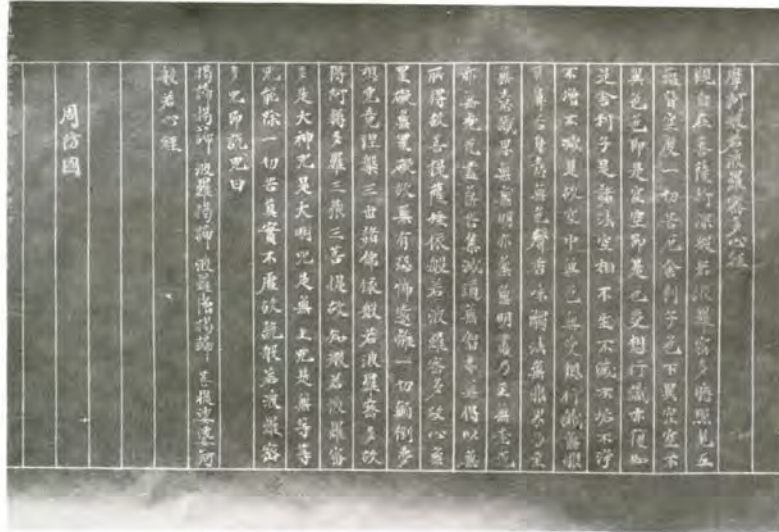 摩訶般若波羅蜜多心経
觀自在菩薩行深般若波羅蜜多時照見五
蘊皆空度一切苦厄舍利子色不異空空不
異色色即是空空即是色受想行識亦復如
是舍利子是諸法空相不生不滅不垢不淨
不増不減是故空中無色無受想行識無眼
耳鼻舌身意無色聲香味觸法無眼界乃至
無意識界無無明亦無無明盡乃至無老死
亦無老死盡無苦集滅道無智亦無得以無
所得故菩提薩埵依般若波羅蜜多故心無
罣礙無罣礙故無有恐怖遠離一切顛倒夢
想究竟涅槃三世諸佛依般若波羅蜜多故
得阿耨多羅三藐三菩提故知般若波羅蜜
多是大神咒是大明咒是無上咒是無等等
咒能除一切苦真實不虚故說般若波羅蜜
多咒即說咒曰
揭諦揭諦 波羅揭諦 波羅僧揭諦 菩提娑婆訶
般若心経
周防國